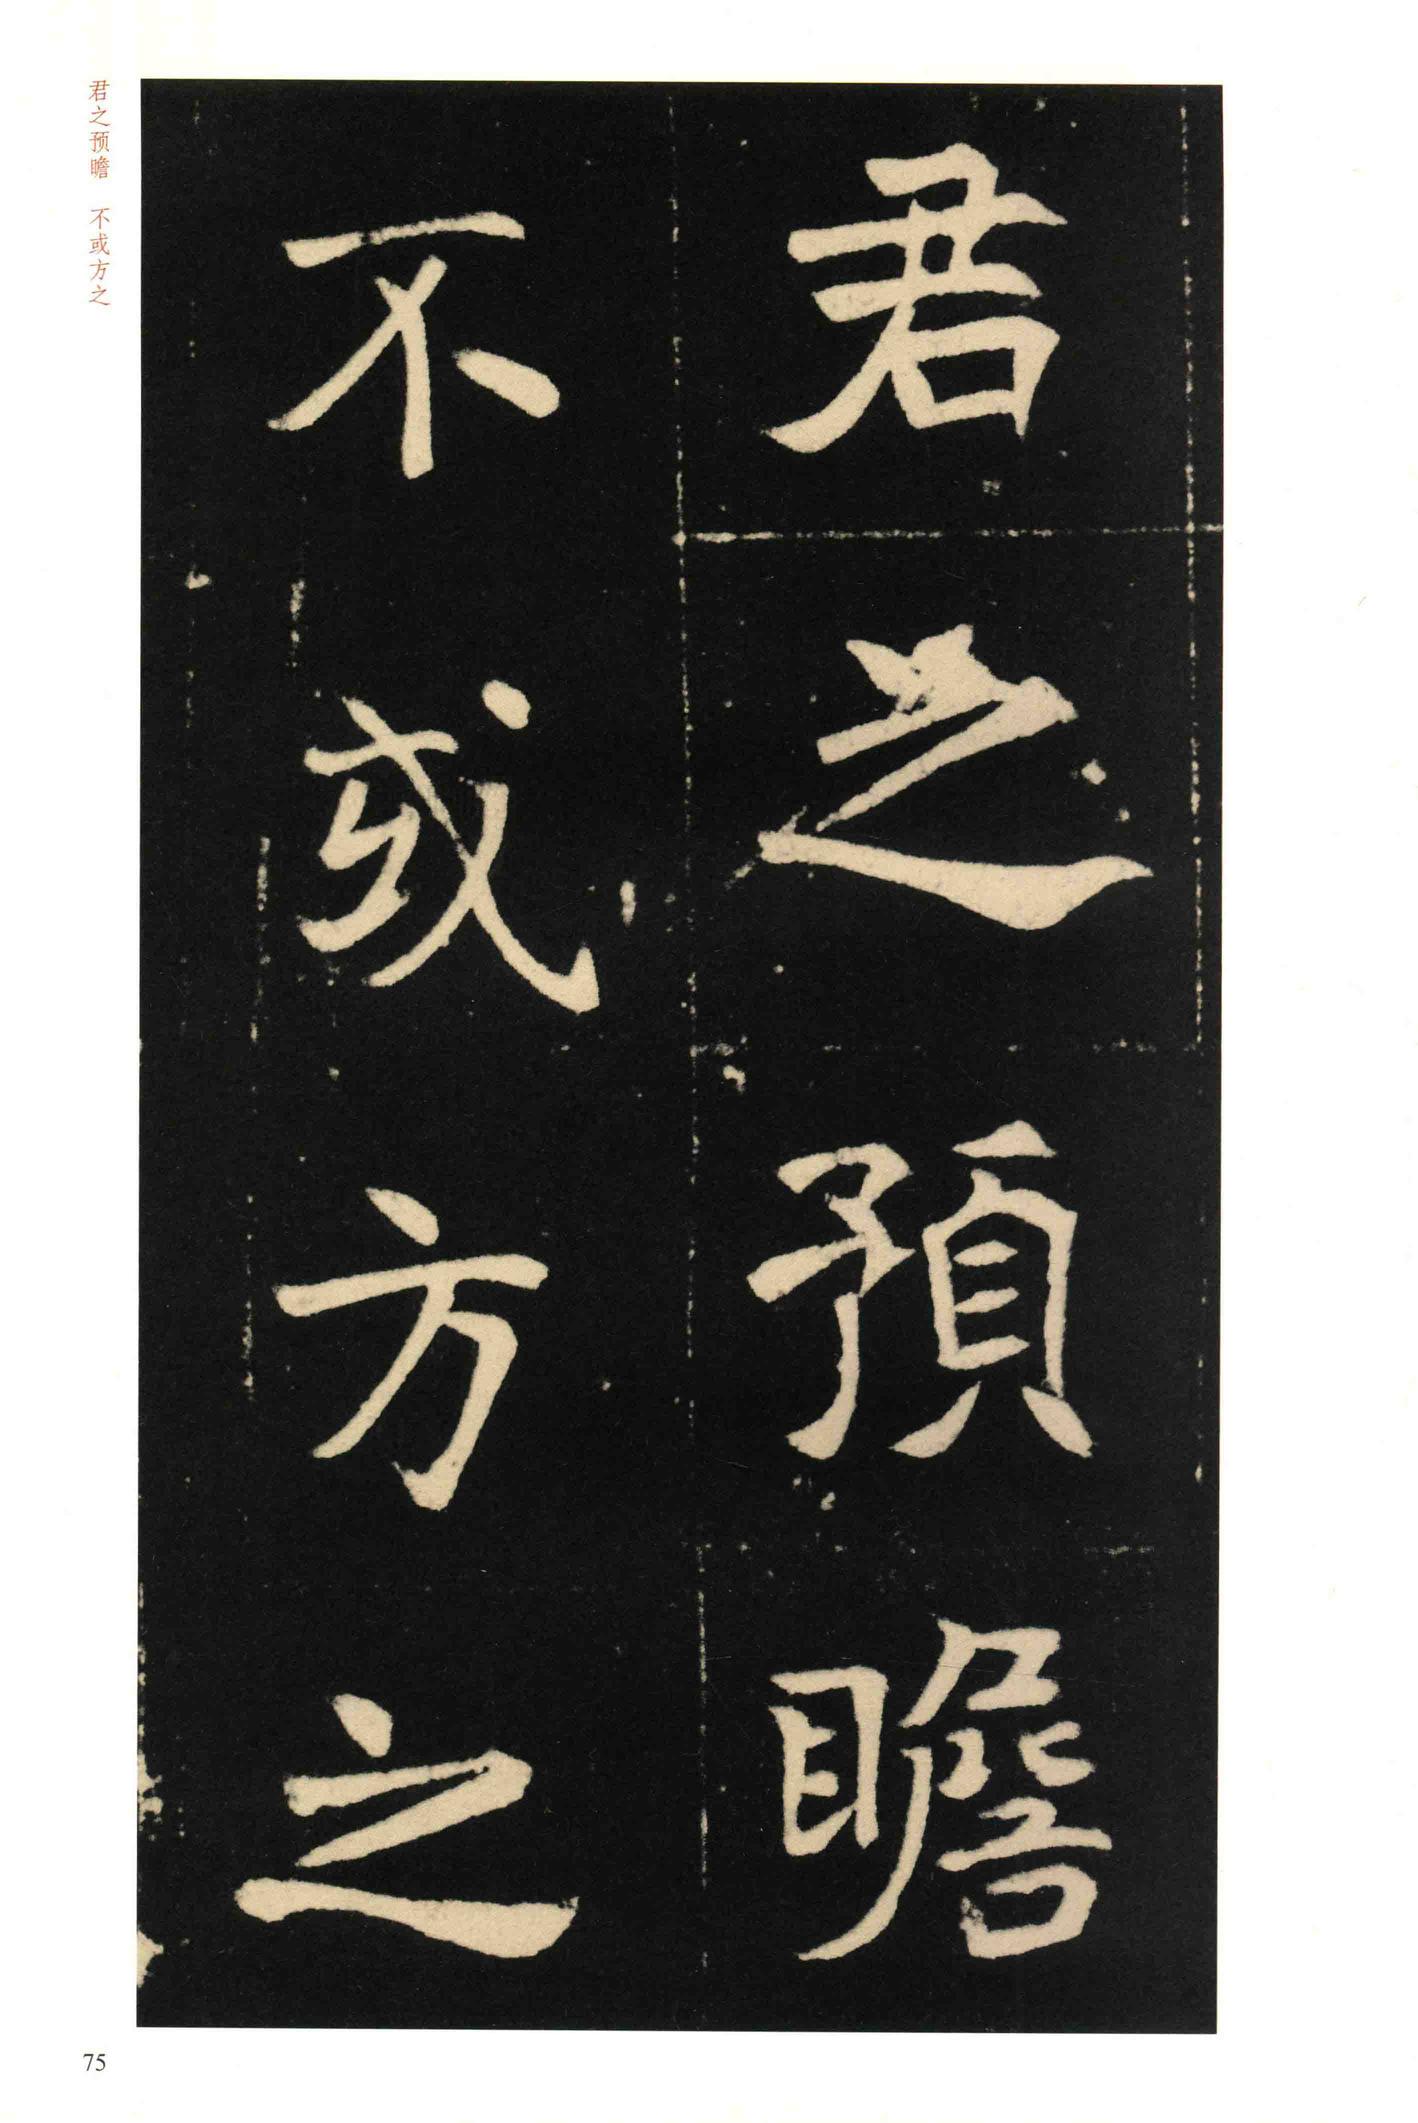 君之預瞻
不或方之
君之预瞻　不或方之
75